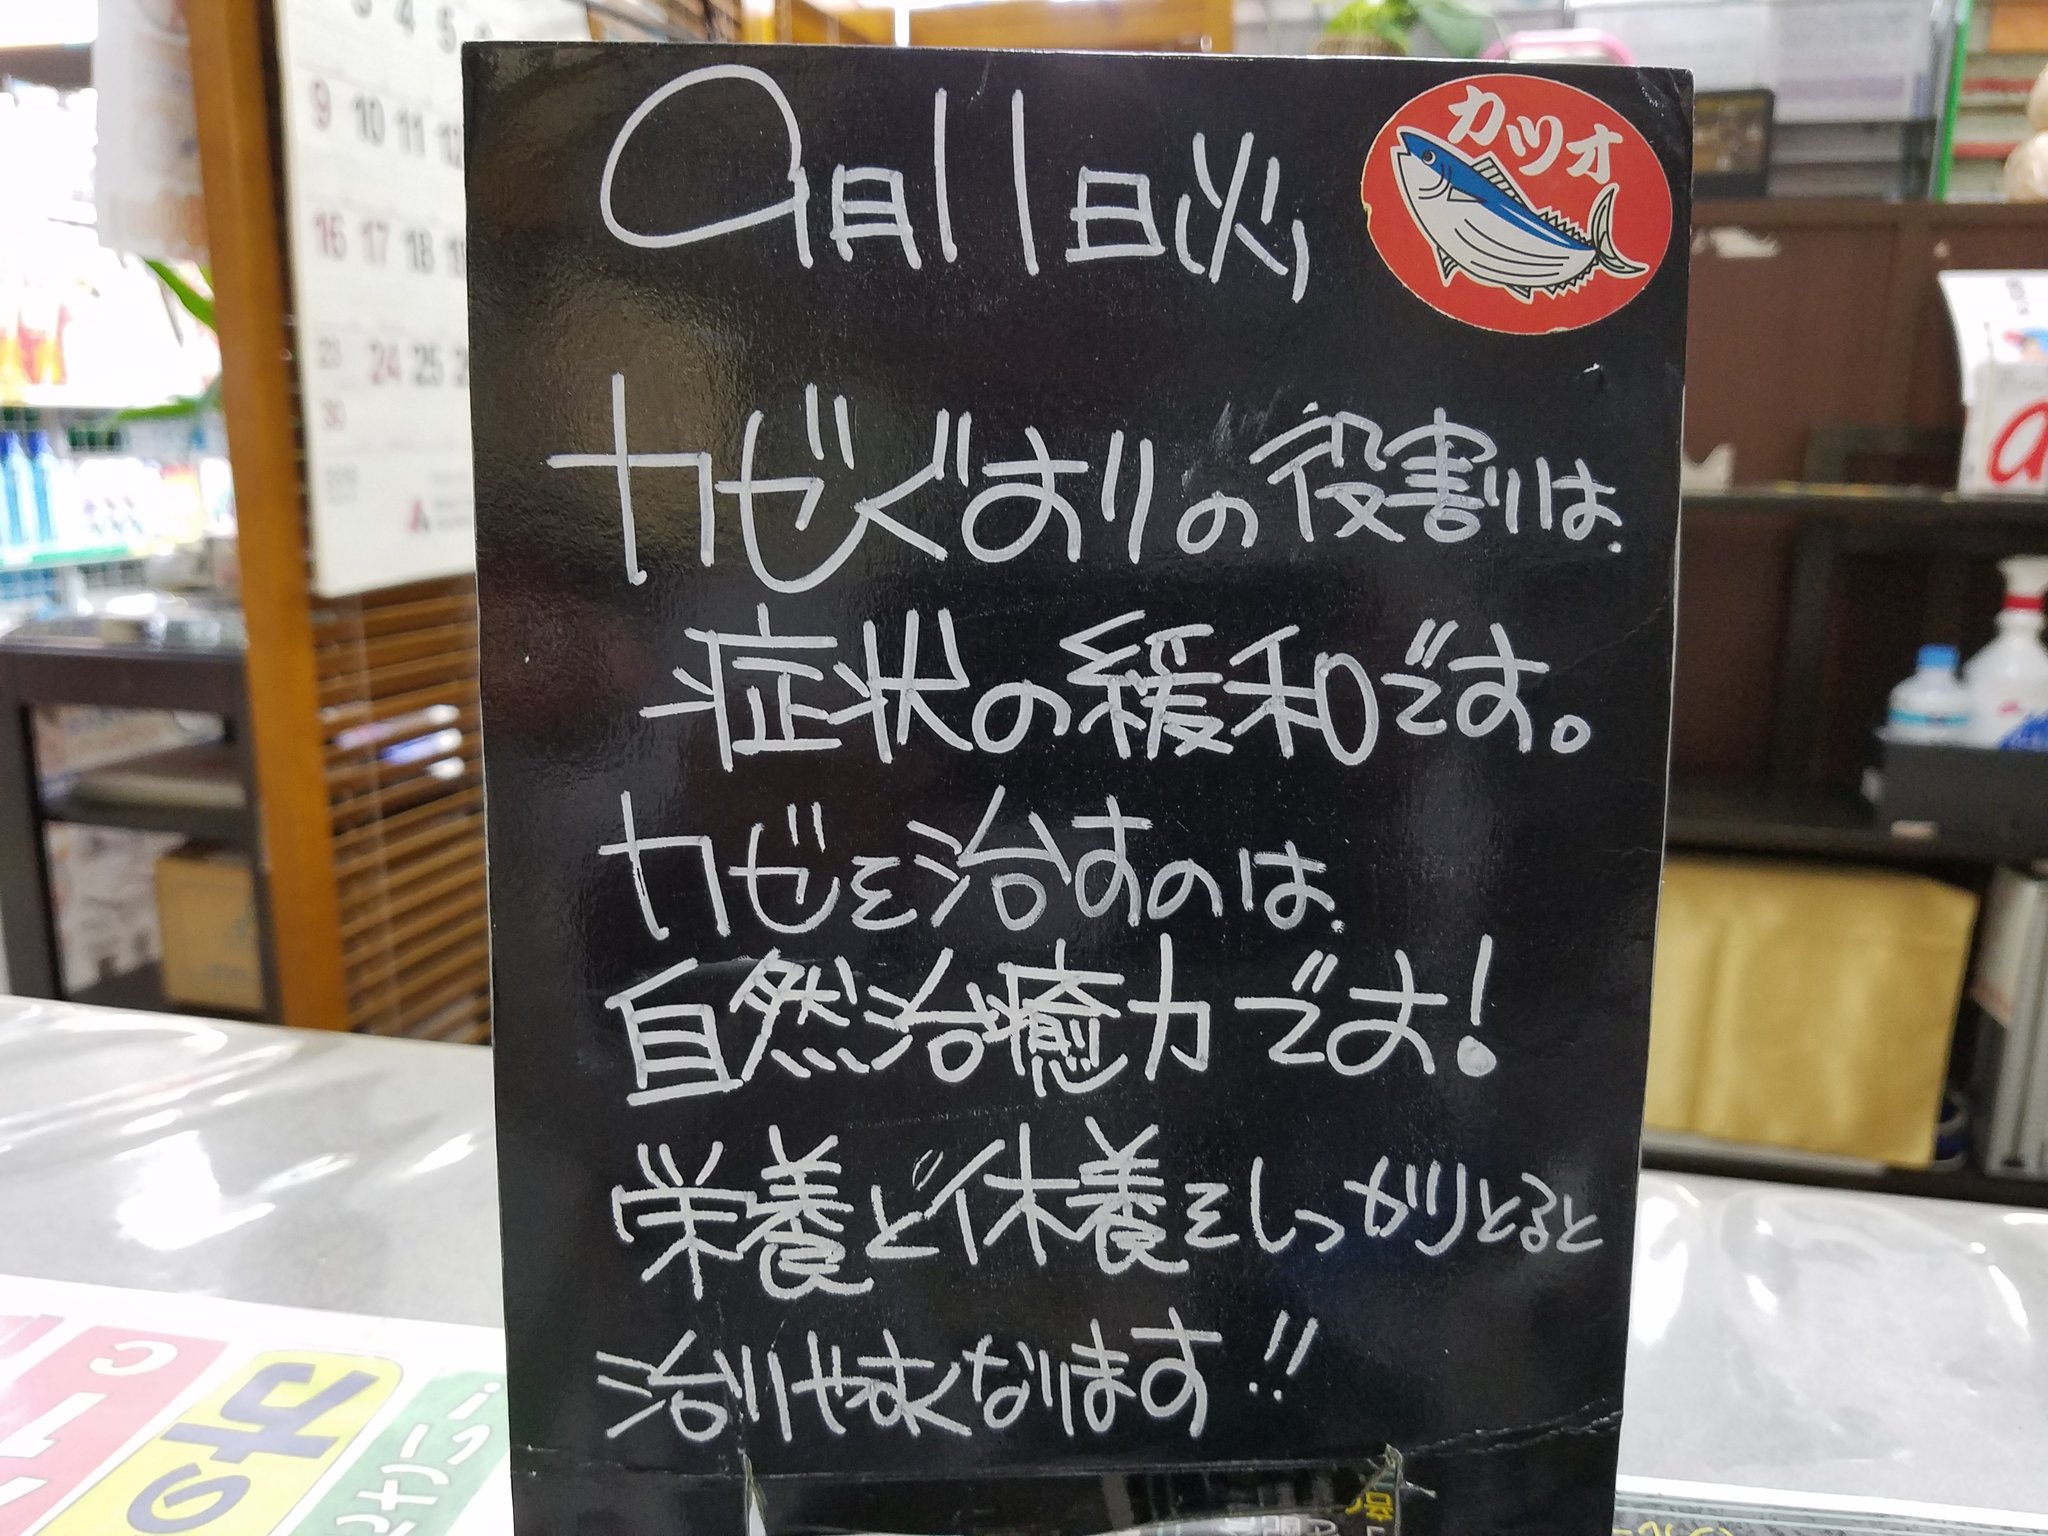 9月11日(火)
カツオ
カゼぐすりの役割は、
症状の緩和です。
カゼを治すのは、
自然治癒力です!
栄養と休養をしっかりとると
治りやすくなります!!
3 4 5
9 10 11 12
16 17 18 19
23 24 25
30